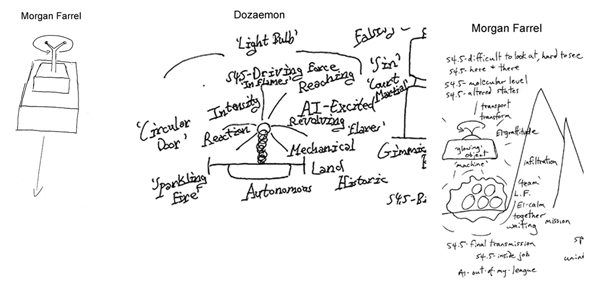 Morgan Farrel
Dozaemon
'Light Bulb'
S4.5-Driving Force
'In Flames'
Reaching
Intensity
AI-Excited
Revolving
'Circular
Door'
Reaction
'Flares'
Mechanical
'Sparkling
Fire'
Land
Autonomous
Historic
'Sin'
'Court
Martial'
Gimmic
Morgan Farrel
S4.5-difficult to look at, hard to see
S4.5-here + there
S4.5-molecular level
S4.5-altered states
transport
transform
EI-gratitude
'glowing-
object'
'machine'
infiltration
'team'
L.F.
EI-calm
together
waiting
mission
S4.5-final transmission
S4.5-inside job
AI-out-of-my-league